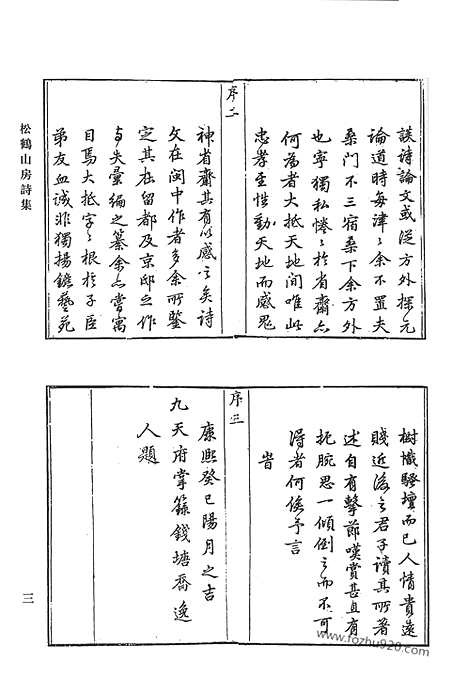 松鶴山房詩集
談詩論文或從方外探元
論道時每津〻余不置夫
桑門不三宿桑下余方外
也寧獨私惓〻於省齋只
何為者大抵天地間唯此
忠孝至性動天地而感鬼
序二
神省齋其有以感之矣詩
文在閩中作者多余所鑒
定其在留都及京邸之作
与失彙編之纂余亦嘗寓
目焉大抵字〻根於子臣
弟友血誠非獨揚鑣藝苑
樹幟騷壇而已人情貴遠
賤近後之君子讀其所著
述自有擊節嘆賞甚且有
扼腕思一傾倒之而不可
得者何俟予言
旹
序三
康熙癸巳陽月之吉
九天府掌籙錢塘喬逸
人題
三
www.fozhu920.com